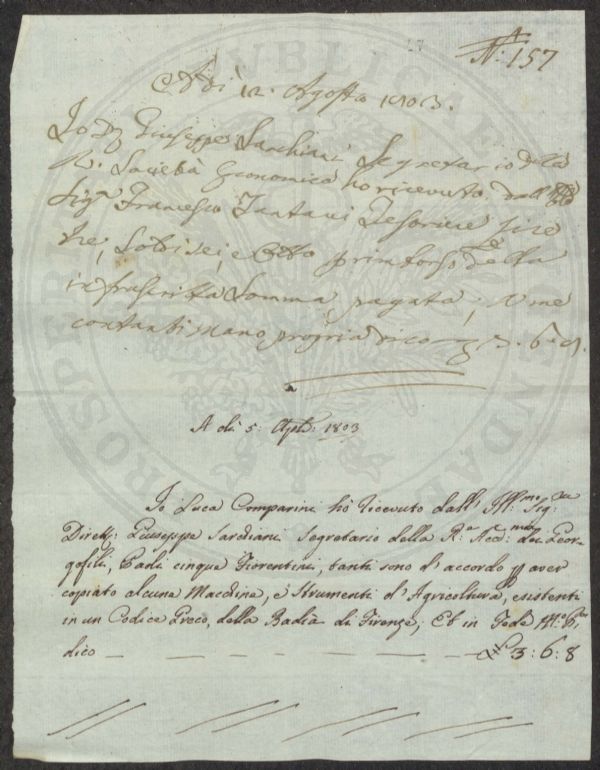 N.º 157
Adì 12. Agosto 1803.
Io Dr. Giuseppe Sarchiani Segretario della
R. Società Economica ho ricevuto dall'
Sigr. Francesco Tartani Tesoriere lire
tre, soldi sei, e otto p rimborso della
infrascritta somma pagata; e me
contanti mano propria dico £ 3. 6. 8.
A dì 5. Agto. 1803
Io Luca Comparini hò ricevuto dall' Ill:mo Sig:re
Dirett: Giuseppe Sardiani Segretario della R.a Acc:mia dei Geor-
gofili, Paoli cinque Fiorentini, tanti sono d'accordo p aver
copiato alcune Macchine, e Strumenti d'Agricoltura, esistenti
in un Codice Greco, della Badia di Firenze; Et in Fede M.o P.ria
dico — — — — — £ 3: 6: 8